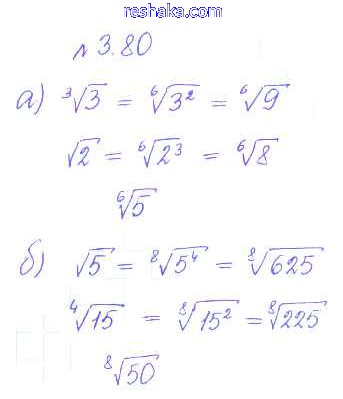 reshaka.com
№ 3.80
а) ³√3 = ⁶√3² = ⁶√9
√2 = ⁶√2³ = ⁶√8
⁶√5
б) √5 = ⁸√5⁴ = ⁸√625
⁴√15 = ⁸√15² = ⁸√225
⁸√50